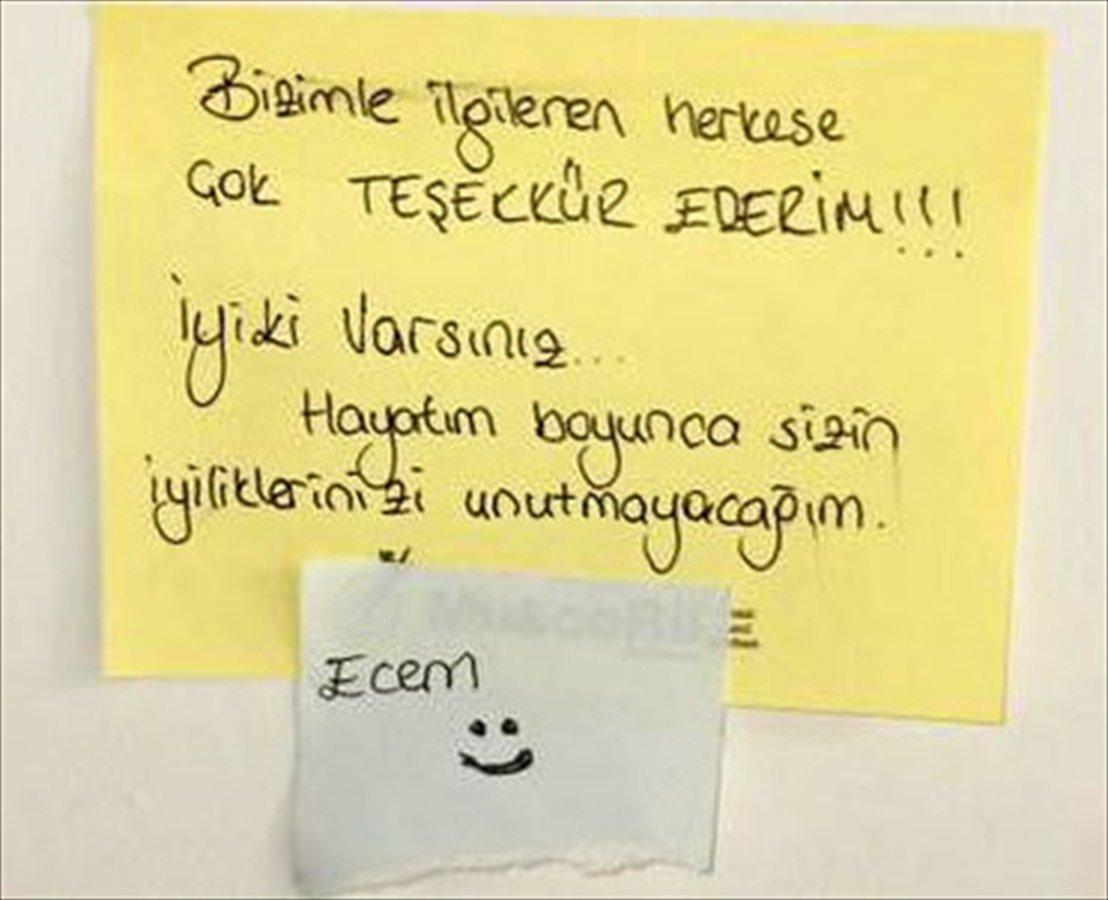 Bizimle ilgilenen herkese
çok TEŞEKKÜR EDERİM!!!
İyiki Varsınız...
Hayatım boyunca sizin
iyiliklerinizi unutmayacağım.
Ecem